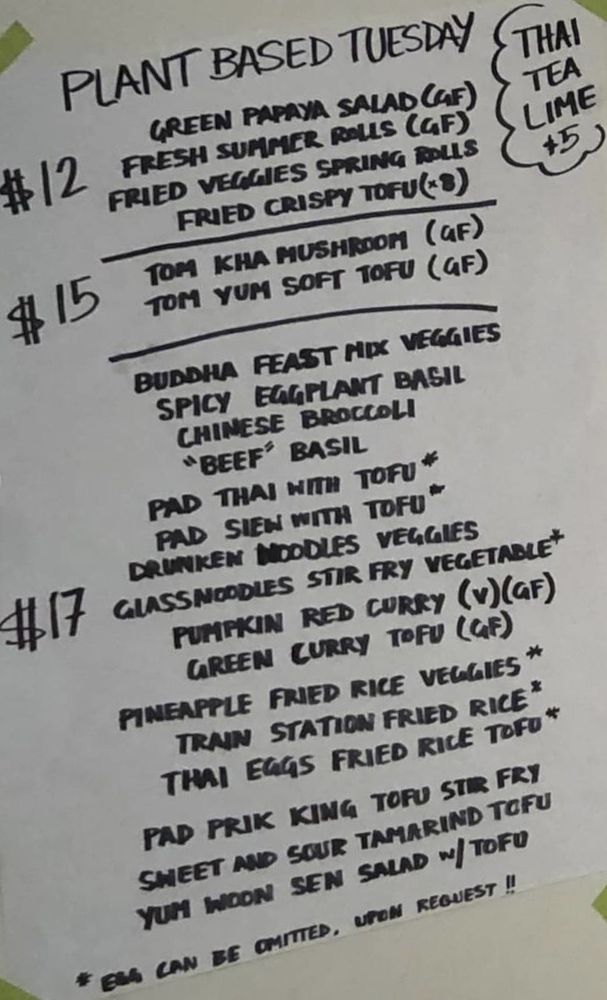 PLANT BASED TUESDAY
THAI
TEA
LIME
+5
$12
GREEN PAPAYA SALAD (GF)
FRESH SUMMER ROLLS (GF)
FRIED VEGGIES SPRING ROLLS
FRIED CRISPY TOFU (×8)
$15
TOM KHA MUSHROOM (GF)
TOM YUM SOFT TOFU (GF)
$17
BUDDHA FEAST MIX VEGGIES
SPICY EGGPLANT BASIL
CHINESE BROCCOLI
"BEEF" BASIL
PAD THAI WITH TOFU*
PAD SIEW WITH TOFU*
DRUNKEN NOODLES VEGGIES
GLASSNOODLES STIR FRY VEGETABLE*
PUMPKIN RED CURRY (V)(GF)
GREEN CURRY TOFU (GF)
PINEAPPLE FRIED RICE VEGGIES*
TRAIN STATION FRIED RICE*
THAI EGGS FRIED RICE TOFU*
PAD PRIK KING TOFU STIR FRY
SWEET AND SOUR TAMARIND TOFU
YUM WOON SEN SALAD w/ TOFU
* EGG CAN BE OMITTED, UPON REQUEST !!